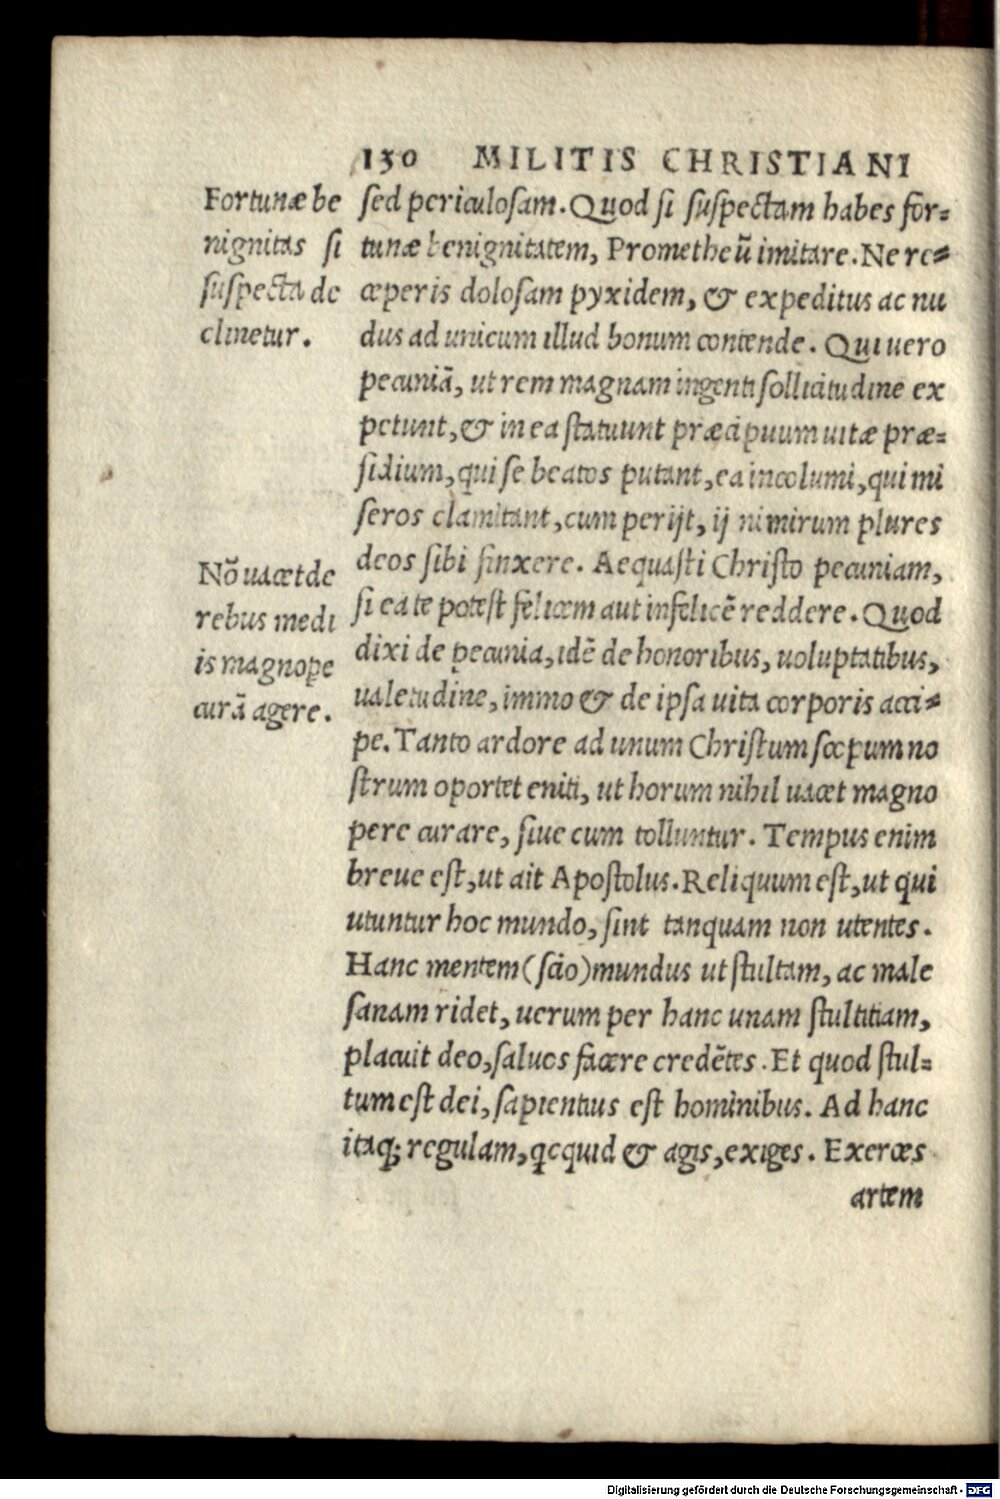 130 MILITIS CHRISTIANI
Fortunæ be
nignitas si
suspecta de
clinetur.
sed periculosam. Quod si suspectam habes for-
tunæ benignitatem, Prometheũ imitare. Ne re-
ceperis dolosam pyxidem, & expeditus ac nu
dus ad unicum illud bonum contende. Qui uero
pecuniã, ut rem magnam ingenti sollicitudine ex
petunt, & in ea statuunt præcipuum uitæ præ-
sidium, qui se beatos putant, ea incolumi, qui mi
seros clamitant, cum perijt, ij nimirum plures
deos sibi finxere. Aequasti Christo pecuniam,
si ea te potest felicem aut infelicẽ reddere. Quod
Nõ uacet de
rebus medi
is magnope
curã agere.
dixi de pecunia, idẽ de honoribus, uoluptatibus,
ualetudine, immo & de ipsa uita corporis acci-
pe. Tanto ardore ad unum Christum scopum no
strum oportet eniti, ut horum nihil uacet magno
pere curare, siue cum tolluntur. Tempus enim
breue est, ut ait Apostolus. Reliquum est, ut qui
utuntur hoc mundo, sint tanquam non utentes.
Hanc mentem (scio) mundus ut stultam, ac male
sanam ridet, uerum per hanc unam stultitiam,
placuit deo, saluos facere credẽtes. Et quod stul-
tum est dei, sapientius est hominibus. Ad hanc
itaq; regulam, qcquid & agis, exiges. Exerces
artem
Digitalisierung gefördert durch die Deutsche Forschungsgemeinschaft - DFG